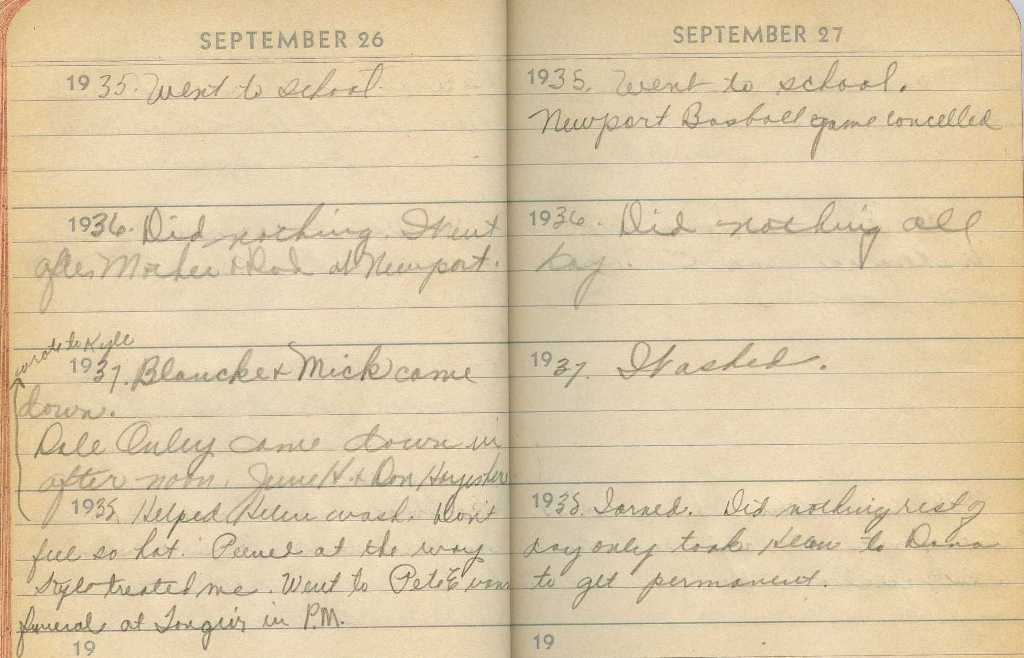 SEPTEMBER 26
1935. Went to school.
1936. Did nothing. Went
after Mother & Dad at Newport.
wrote to Kyle
1937. Blancke & Mick came
down.
Dale Onley came down in
after noon. June H. & Don
1938. Helped Helen wash. Don't
feel so hot. Peeved at the way
Kyle treated me. Went to Pete Evans
funeral at in P.M.
19
SEPTEMBER 27
1935. Went to school.
Newport Basball game cancelled
1936. Did nothing all
day.
1937. Washed.
1938. Iorned. Did nothing rest of
day only took Helen to Dana
to get permanent.
19